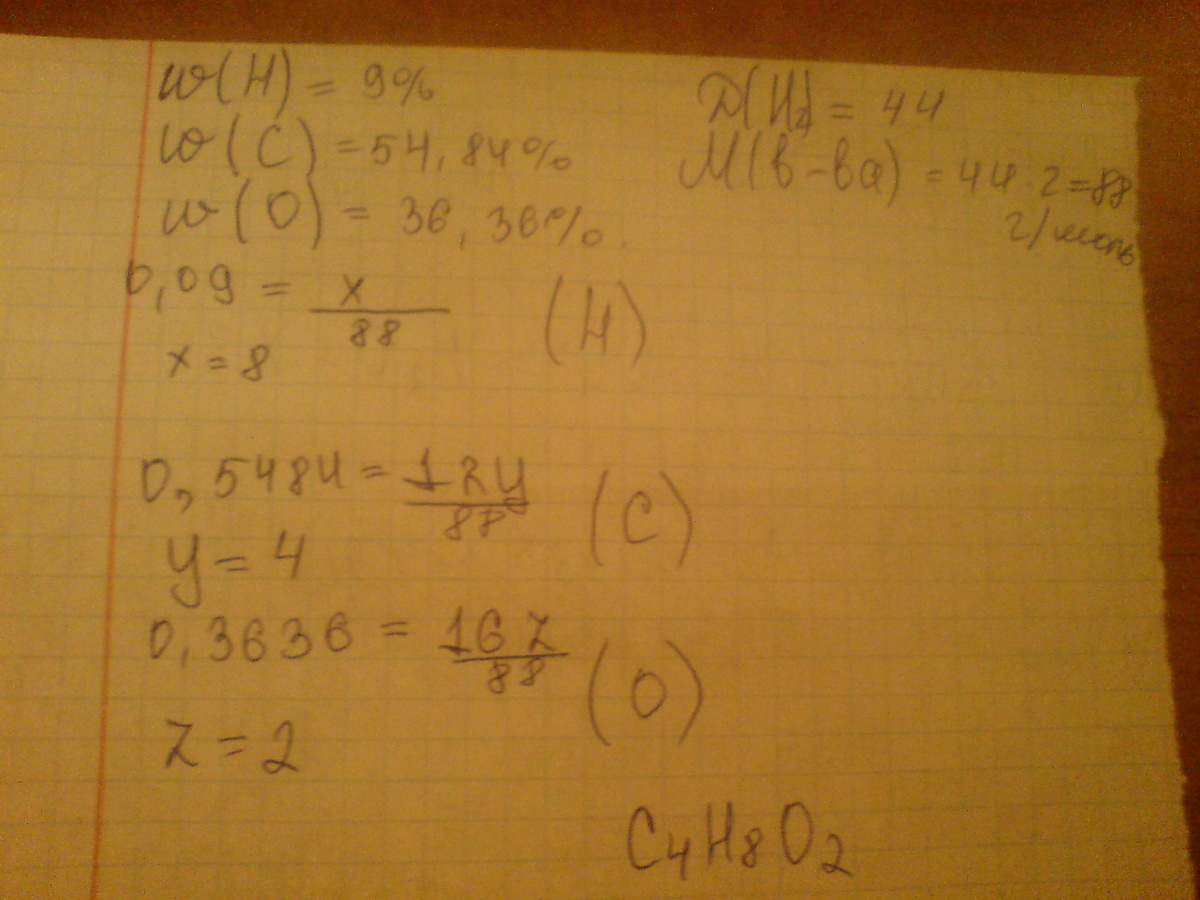 w(H) = 9%
D(H₂) = 44
w(C) = 54,84%
M(в-ва) = 44 · 2 = 88
г/моль
w(O) = 36,36%.
0,09 = x/88 (H)
x = 8
0,5484 = 12y/88 (C)
y = 4
0,3636 = 16z/88 (O)
z = 2
C₄H₈O₂